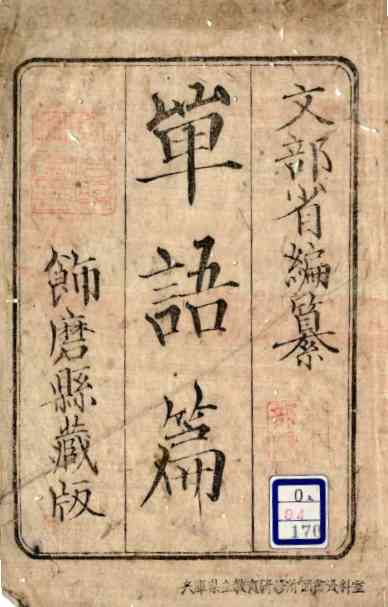 文部省編纂
單語篇
飾磨縣藏版
0.
94
170
兵庫県立教育研修所図書資料室